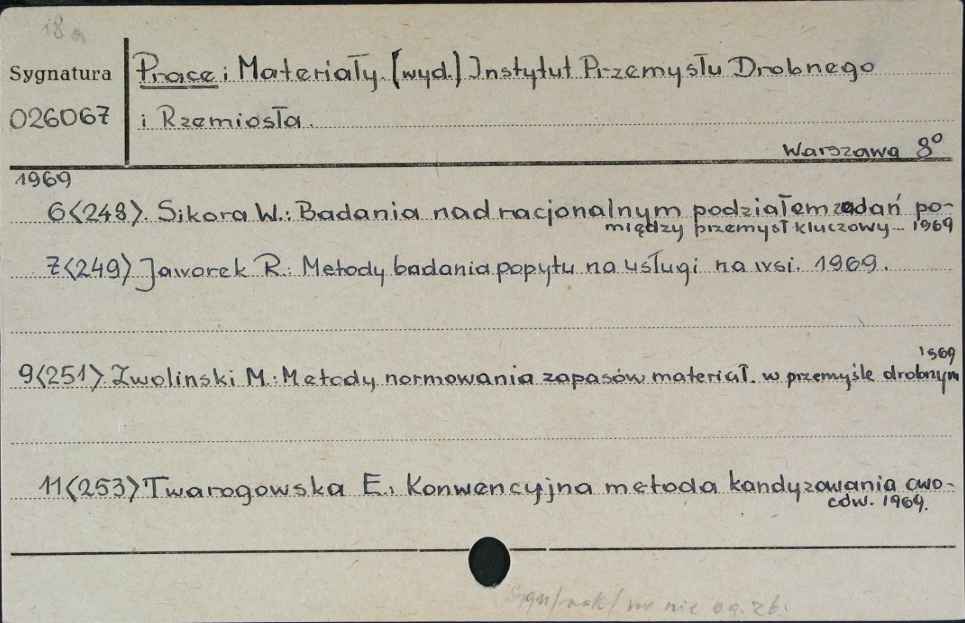 18a
Sygnatura
026067
Prace i Materiały. [wyd.] Instytut Przemysłu Drobnego
i Rzemiosła.
Warszawa 8°
1969
6<248>. Sikora W.: Badania nad racjonalnym podziałem zadań po-
między przemysł kluczowy... 1969
7<249> Jaworek R.: Metody badania popytu na usługi na wsi. 1969.
1969
9<251>. Zwolinski M.: Metody normowania zapasów materiał. w przemyśle drobnym
11<253> Twarogowska E. Konwencyjna metoda kandyzowania owo-
ców. 1969.
nr nie